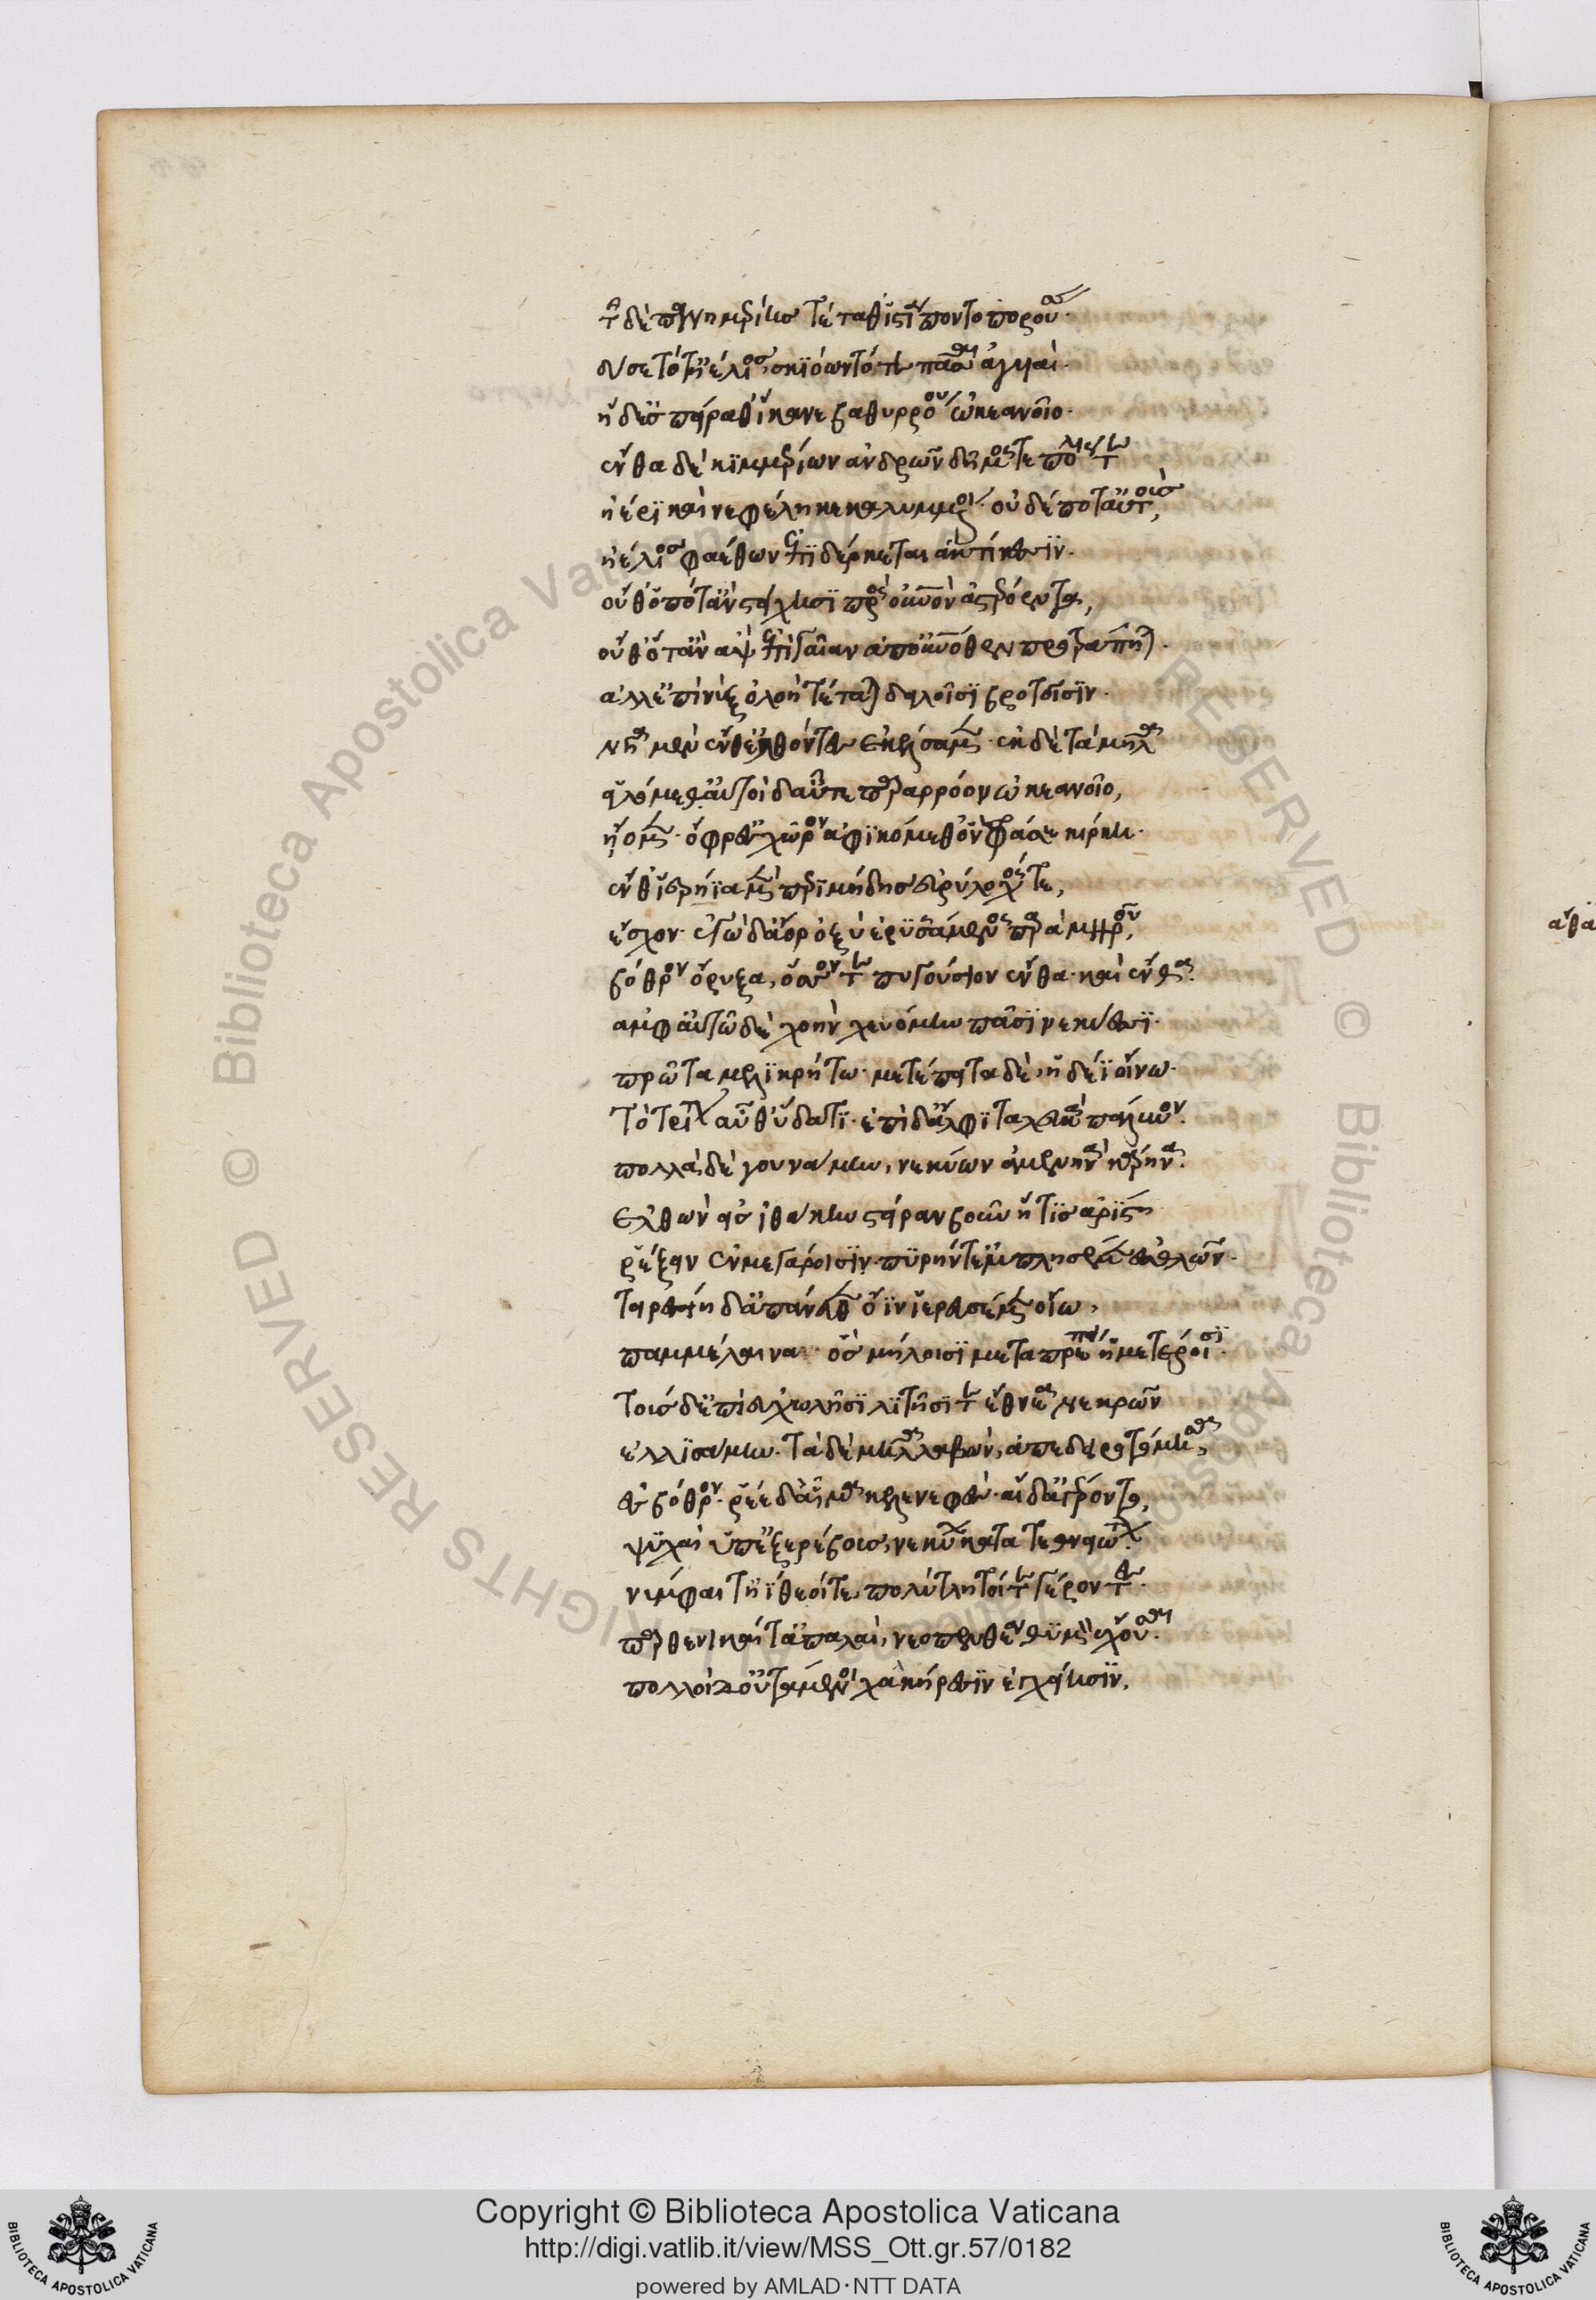 τῆς δὲ πανημερίης τέταθ' ἱστία ποντοπορούσης·
δύσετό τ' ἠέλιος, σκιόωντό τε πᾶσαι ἀγυιαί·
ἡ δ' ἐς πείραθ' ἵκανε βαθυρρόου ὠκεανοῖο·
ἔνθα δὲ κιμμερίων ἀνδρῶν δῆμός τε πόλις τε
ἠέρι καὶ νεφέλη κεκαλυμμένοι· οὐδέποτ' αὐτοὺς,
ἠέλιος φαέθων ἐπιδέρκεται ἀκτίνεσσιν·
οὔθ' ὁπότ' ἂν στείχησι πρὸς οὐρανὸν ἀστερόεντα,
οὔθ' ὅτ' ἂν ἂψ ἐπὶ γαῖαν ἀπ' οὐρανόθεν προτράπηται·
ἀλλ' ἐπὶ νὺξ ὀλοὴ τέταται δειλοῖσι βροτοῖσιν·
νῆα μὲν ἔνθ' ἐλθόντες ἐκέλσαμεν· ἐκ δὲ τὰ μῆλα
εἱλόμεθ' αὐτοὶ δ' αὖτε παρὰ ῥόον ὠκεανοῖο,
ᾔομεν· ὄφρ' ἐς χῶρον ἀφικόμεθ' ὃν φράσε κίρκη·
ἔνθ' ἱερήϊα μὲν περιμήδης εὐρύλοχός τε,
ἔσχον· ἐγὼ δ' ἄορ ὀξὺ ἐρυσσάμενος παρὰ μηροῦ,
βόθρον ὄρυξα, ὅσον τε πυγούσιον ἔνθα καὶ ἔνθα·
ἀμφ' αὐτῶ δὲ χοὴν χεόμην πᾶσι νεκύεσσι·
πρῶτα μελικρήτω· μετέπειτα δὲ, ἡδέϊ οἴνω·
τὸ τρίτον αὖθ' ὕδατι· ἐπὶ δ' ἄλφιτα λευκὰ πάλυνον·
πολλὰ δὲ γουνούμην, νεκύων ἀμενηνὰ κάρηνα·
ἐλθὼν εἰς ἰθάκην στεῖραν βοῦν ἥτις ἀρίστη
ῥέξειν ἐν μεγάροισιν· πυρήν τ' ἐμπλησέμεν ἐσθλῶν·
τειρεσίη δ' ἀπάνευθεν ὄϊν ἱερευσέμεν οἴω,
παμμέλαιναν· ὃς μήλοισι μεταπρέπει ἡμετέροισι·
τοὺς δ' ἐπὶ εὐχωλῆσι λιτῆσί τε ἔθνεα νεκρῶν
ἐλλισάμην· τὰ δὲ μῆλα λαβὼν, ἀπεδειροτόμησα,
ἐς βόθρον· ῥέε δ' αἷμα κελαινεφές· αἱ δ' ἀγέροντο,
ψυχαὶ ὑπ' ἐξ ἐρέβους, νεκύων κατατεθνειώτων·
νύμφαι τ' ἠΐθεοί τε, πολύτλητοί τε γέροντες·
παρθενικαί τ' ἀταλαὶ, νεοπενθέα θυμὸν ἔχουσαι·
πολλοὶ δ' οὐτάμενοι χαλκήρεσιν ἐγχείησιν,
Copyright © Biblioteca Apostolica Vaticana
http://digi.vatlib.it/view/MSS_Ott.gr.57/0182
powered by AMLAD·NTT DATA